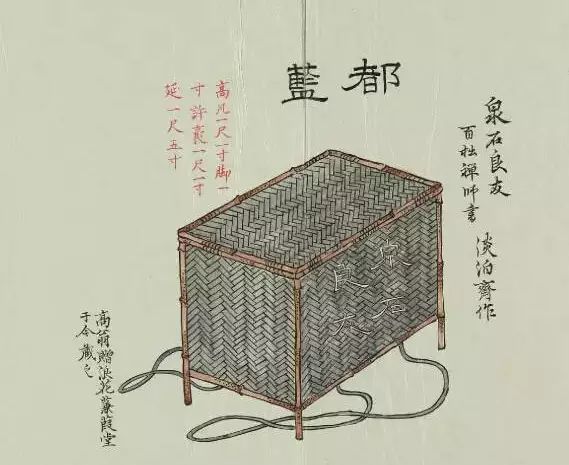 都籃
泉石良友
百拙禅師書
淡泊齊作
高凡一尺一寸脚一
寸許袤一尺一寸
延一尺五寸
泉石
良友
高翁贈浪花蒹葭堂
于今藏之